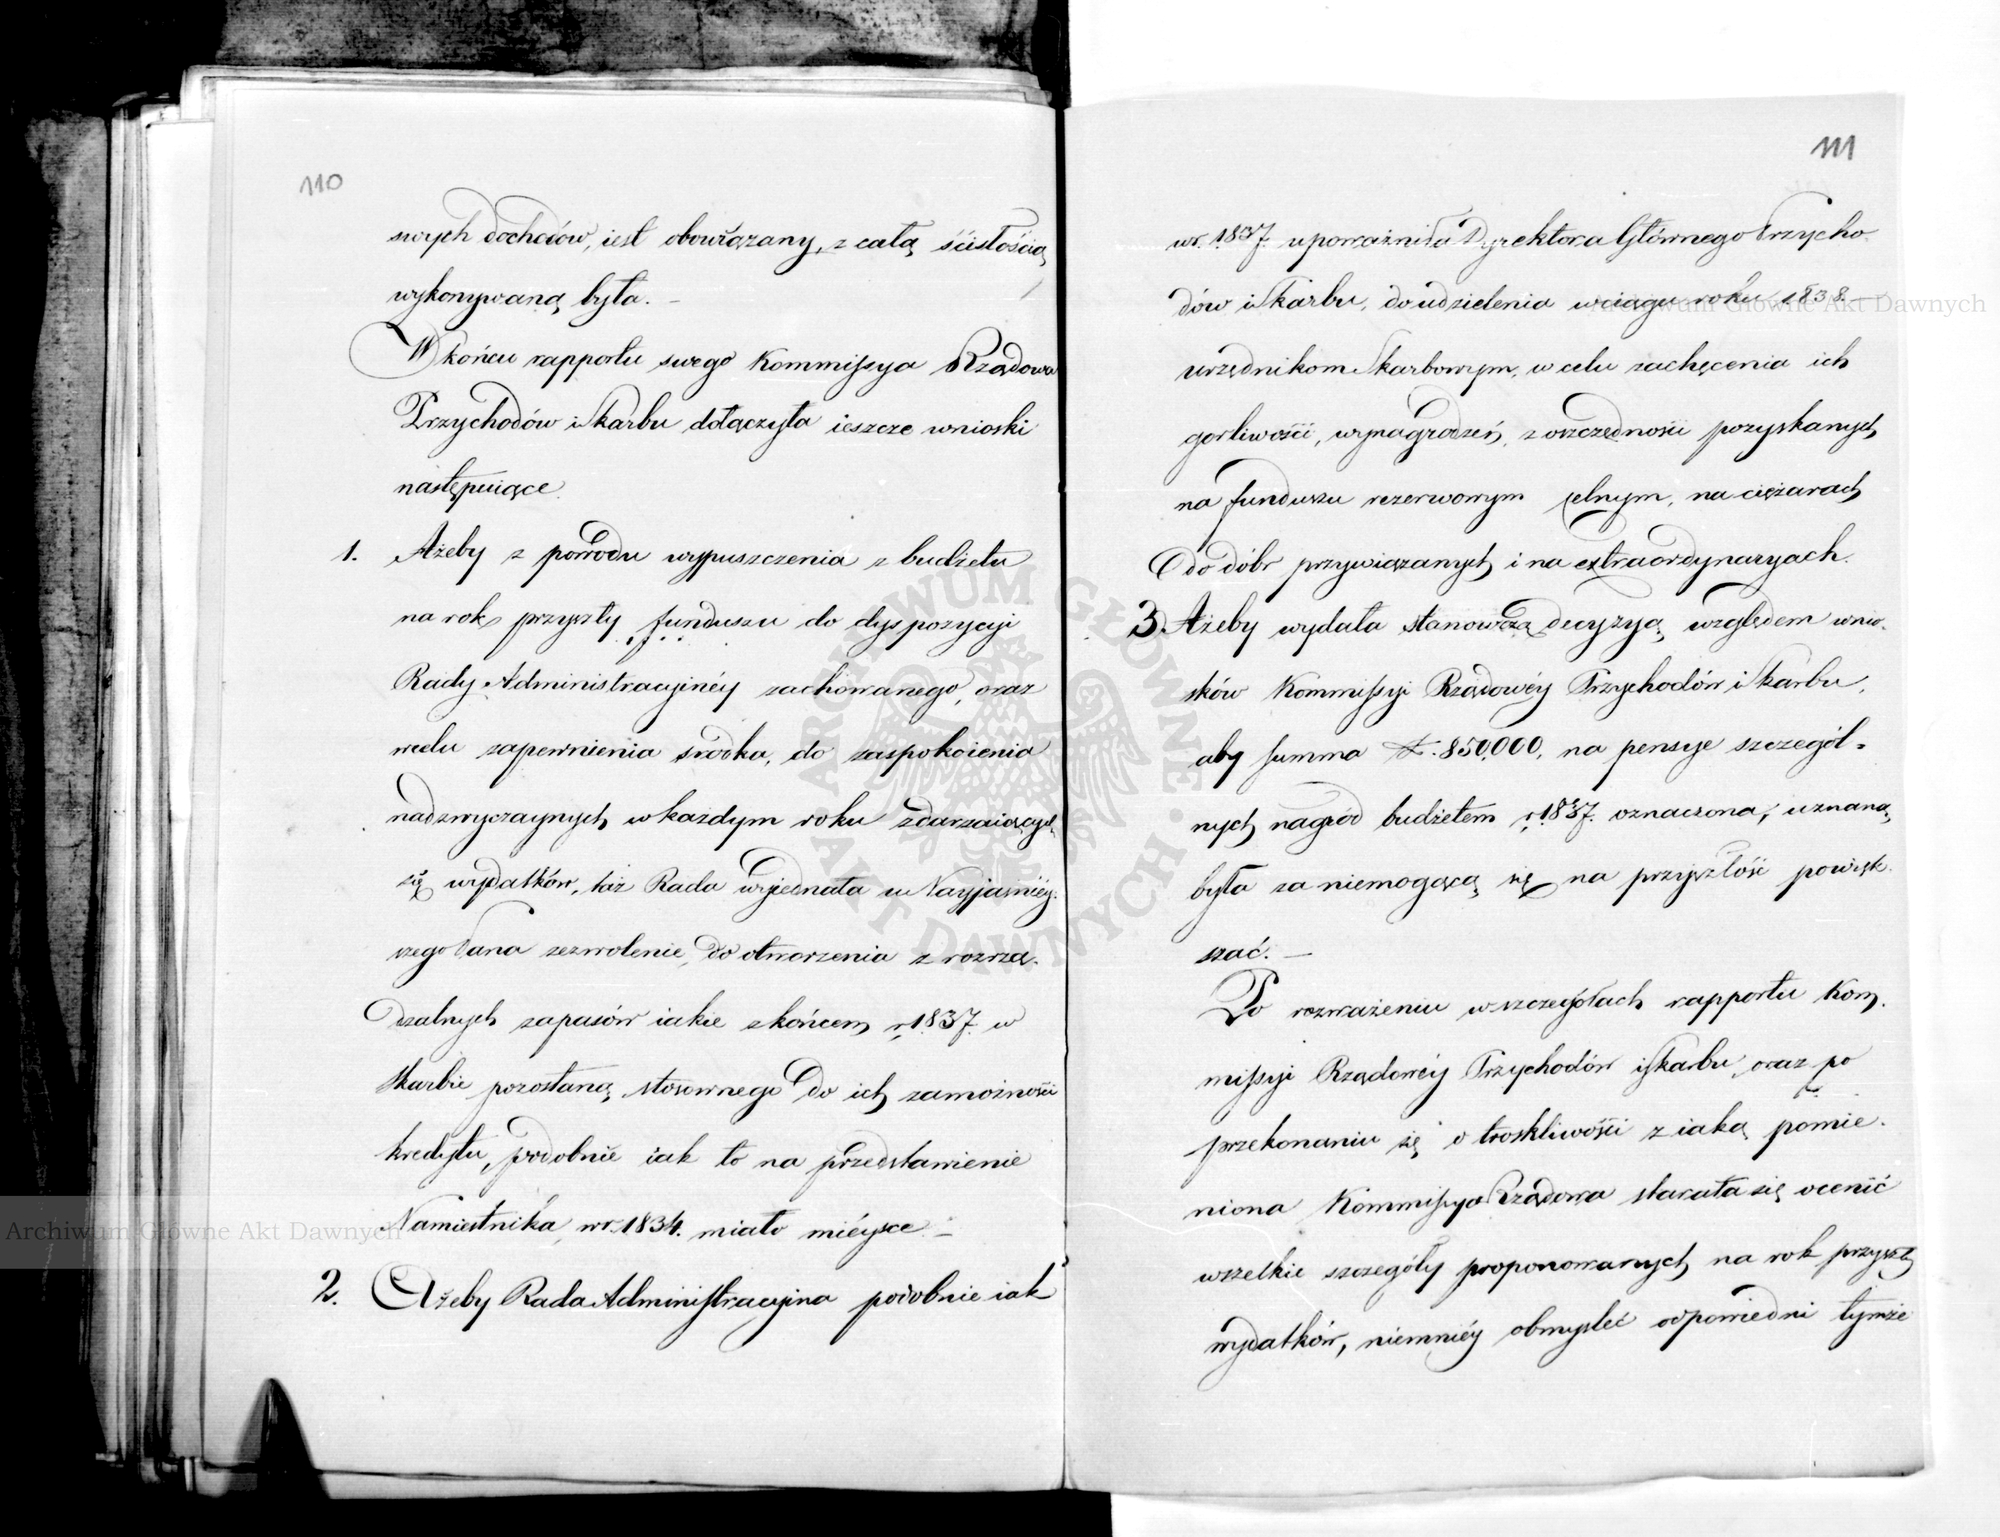 110
swych dochodów, iest obowiązany, z całą ścisłością
wykonywaną była. –
W końcu rapportu swego Kommissya Rządowa
Przychodów i Skarbu dołączyła ieszcze wnioski
następuiące.
1. Ażeby z powodu wypuszczenia z budżetu
na rok przyszły funduszu do dyspozycyi
Rady Administracyinéy zachowanego, oraz
w celu zapewnienia środka, do zaspokoienia
nadzwyczaynych w każdym roku zdarzaiących
się wydatków, taż Rada wyiednała u Nayjaśniéy-
szego Pana zezwolenie, do otworzenia z rozrzą-
dzalnych zapasów iakie z końcem r. 1837. w
Skarbie pozostaną, stosownego do ich zamożności
kredytu, podobnie iak to na przedstawienie
Namiestnika, w r. 1834. miało miéysce. –
2. Ażeby Rada Administracyina podobnie iak
111
w r. 1837. upoważniła Dyrektora Głównego Przycho-
dów i Skarbu, do udzielenia w ciągu roku 1838. –
urzędnikom Skarbowym, w celu zachęcenia ich
gorliwości, wynagrodzeń, z oszczędności pozyskanych
na funduszu rezerwowym celnym, na ciężarach
do dóbr przywiązanych i na extraordynaryach.
3. Ażeby wydała stanowczą decyzyą względem wnio-
sków Kommissyi Rządowéy Przychodów i Skarbu,
aby summa Zł. 850,000, na pensye szczegól-
nych nagród budżetem r. 1837. oznaczona, uznaną
była za niemogącą się na przyszłość powięk-
szać. –
Po rozważeniu w szczegółach rapportu Kom-
missyi Rządowéy Przychodów i Skarbu, oraz po
przekonaniu się o troskliwości z iaką pomie-
niona Kommissya Rządowa starała się ocenić
wszelkie szczegóły proponowanych na rok przyszły
wydatków, niemniéy obmyśleć odpowiedni tymże
Archiwum Główne Akt Dawnych
Archiwum Główne Akt Dawnych
ARCHIWUM GŁÓWNE AKT DAWNYCH